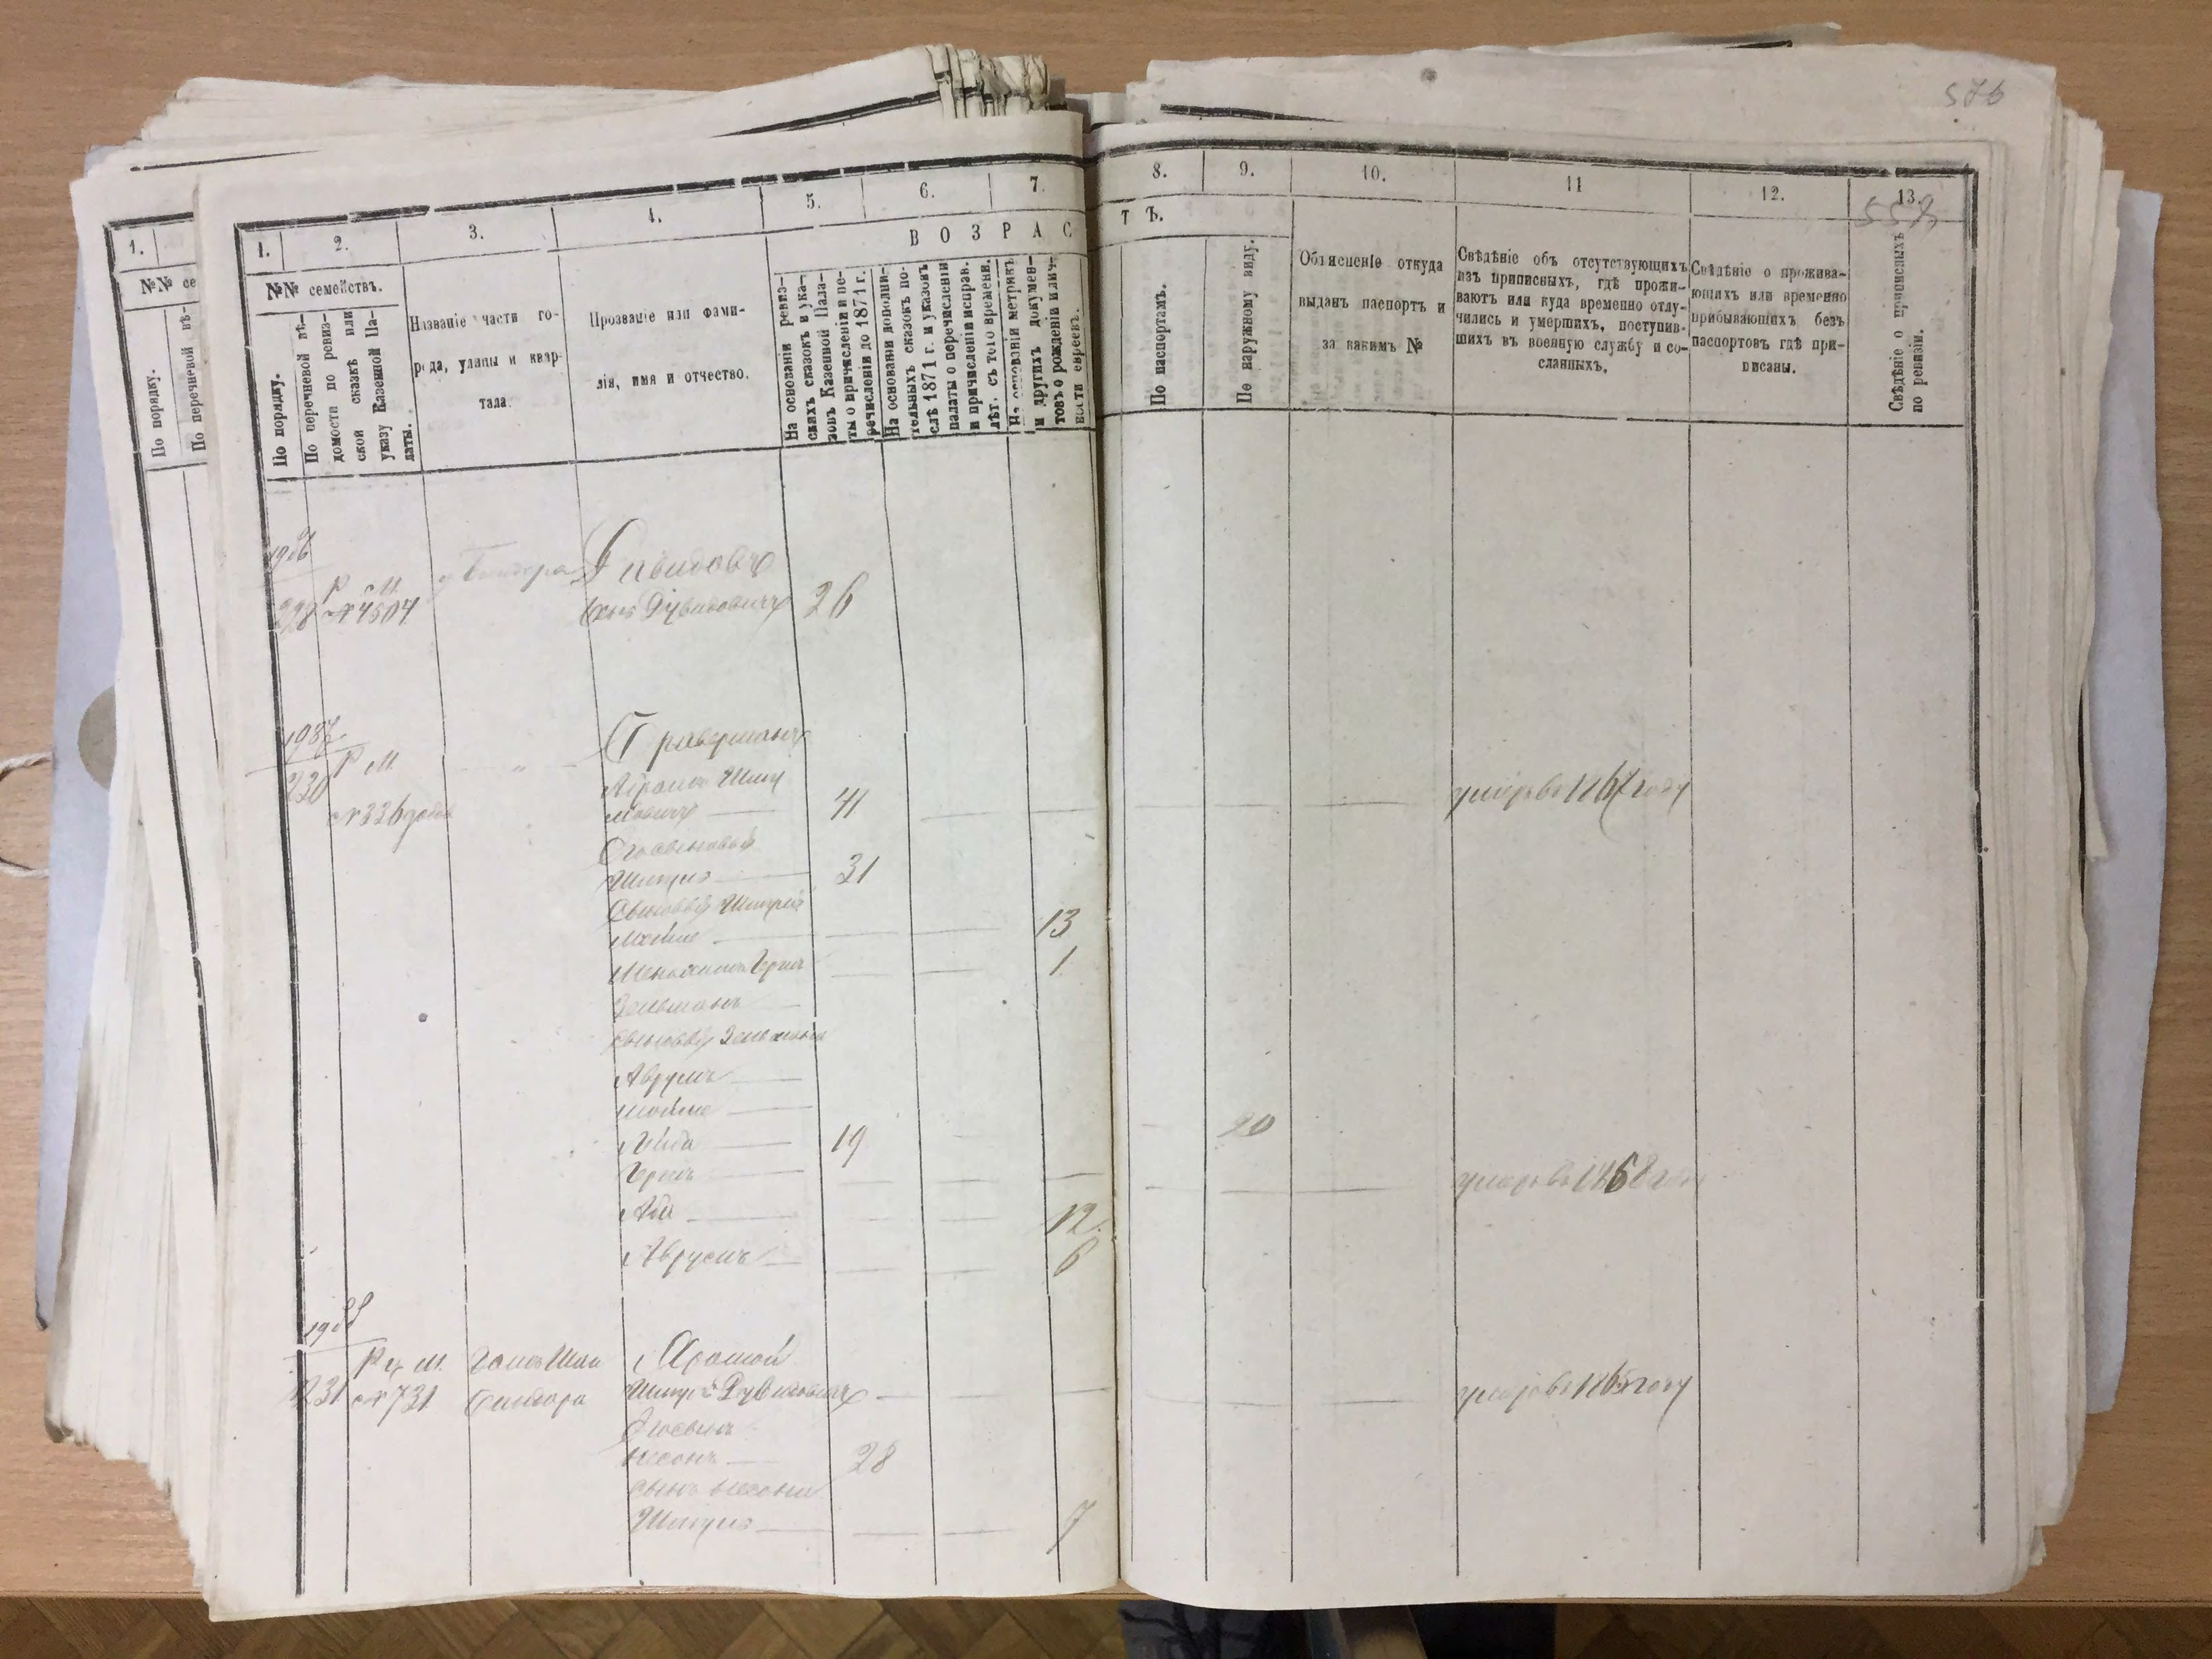 576
1.
№№ се
По порядку.
По перечневой вѣ-
1.
2.
3.
4.
5.
6.
7.
8.
9.
10.
11
12.
13.
№№ семействъ.
По порядку.
По перечневой вѣ-
домости по ревиз-
ской сказкѣ или
указу Казенной Па-
латы.
Названіе части го-
рода, улицы и квар-
тала.
Прозваніе или фами-
лія, имя и отчество.
В О З Р А С
Т Ъ.
На основаніи ревиз-
скихъ сказокъ и ука-
зовъ Казенной Пала-
ты о причисленіи и пе-
речисленіи до 1871 г.
На основаніи дополни-
тельныхъ сказокъ по-
слѣ 1871 г. и указовъ
палаты о перечисленіи
и причисленіи исправ.
лѣт. съ того времени.
На основаніи метрикъ
и другихъ докумен-
товъ о рожденіи и лич-
ности евреевъ.
По паспортамъ.
По наружному виду.
Объясненіе откуда
выданъ паспортъ и
за какимъ №
Свѣдѣніе объ отсутствующихъ
изъ приписныхъ, гдѣ прожи-
ваютъ или куда временно отлу-
чились и умершихъ, поступив-
шихъ въ военную службу и со-
сланныхъ.
Свѣдѣніе о прожива-
ющихъ или временно
прибывающихъ безъ
паспортовъ гдѣ при-
писаны.
Свѣдѣніе о приписныхъ
по ревизіи.
1986
Давидовъ
228 Р М. № 4504
Дувидовичъ 26
1987
Граверманъ
230 Р М.
№ 336
мовичъ 41 умеръ въ 1867 году
Его сыновья
Шмуль 31
Сыновья Шмуля
Мойше 13
1
Зельманъ
Сыновья Зельмана
Аврумъ
Мойше
Лейба 19 20
Гершъ умеръ въ 1868
Аба 12
Аврумъ 6
1988
231 Р М. № 731
Шмуль Дувидовичъ умеръ въ 1865 году
Его сынъ
28
сынъ
Шмуль 7